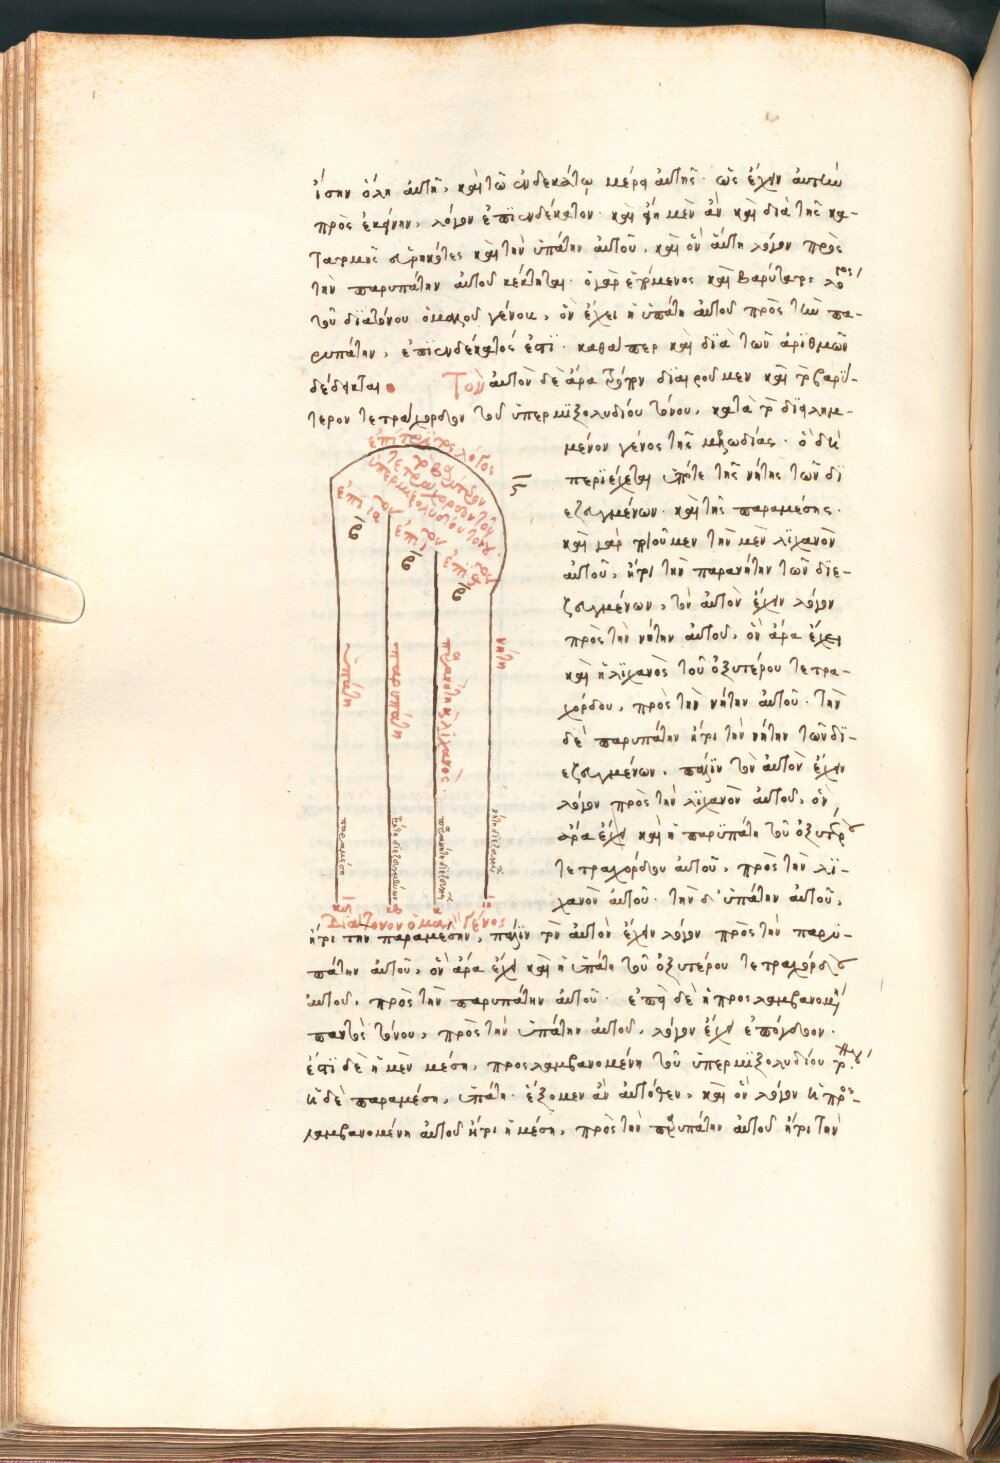 ἴσην ὅλῃ αὐτῇ, καὶ τῷ ἑνδεκάτῳ μέρει αὐτῆς· ὡς ἔχειν αὐτὴν
πρὸς ἐκείνην, λόγον ἐπιενδέκατον· καὶ ᾗ μὲν ἂν καὶ διὰ τῆς κα-
τατομῆς εἰρηκότες καὶ τὴν ὑπάτην αὐτοῦ, καὶ ὃν αὕτη λόγον πρὸς
τὴν παρυπάτην αὐτοῦ κέκτηται· ὁ γὰρ ἑπόμενος καὶ βαρύτατος λόγος
τοῦ διατόνου ὁμαλοῦ γένους, ὃν ἔχει ἡ ὑπάτη αὐτοῦ πρὸς τὴν πα-
ρυπάτην, ἐπιενδέκατός ἐστι· καθάπερ καὶ διὰ τῶν ἀριθμῶν
δέδεικται. Τὸν αὐτὸν δὲ ἄρα τρόπον διαιροῦμεν καὶ τὸ βαρύ-
τερον τετράχορδον τοῦ ὑπερμιξολυδίου τόνου, κατὰ τὸ διειλημ-
μένον γένος τῆς μελωδίας· ὃ δὴ
περιέχεται ὑπό τε τῆς νήτης τῶν δι
εζευγμένων· καὶ τῆς παραμέσης·
καὶ γὰρ ποιοῦμεν τὴν μὲν λίχανὸν
αὐτοῦ, ἤτοι τὴν παρανήτην τῶν διε-
ζευγμένων, τὸν αὐτὸν ἔχειν λόγον
πρὸς τὴν νήτην αὐτοῦ, ὃν ἄρα ἔχει
καὶ ἡ λίχανὸς τοῦ ὀξυτέρου τετρα-
χόρδου, πρὸς τὴν νήτην αὐτοῦ· τὴν
δὲ παρυπάτην ἤτοι τὴν νήτην τῶν δι-
εζευγμένων, πάλιν τὸν αὐτὸν ἔχειν
λόγον πρὸς τὴν λίχανὸν αὐτοῦ, ὃν
ἄρα ἔχει καὶ ἡ παρυπάτη τοῦ ὀξυτέρου
τετραχόρδου αὐτοῦ, πρὸς τὴν λί-
χανὸν αὐτοῦ· τὴν δ' ὑπάτην αὐτοῦ,
ἤτοι τὴν παραμέσην, πάλιν τὸν αὐτὸν ἔχειν λόγον πρὸς τὴν παρυ-
πάτην αὐτοῦ, ὃν ἄρα ἔχει καὶ ἡ ὑπάτη τοῦ ὀξυτέρου τετραχόρδου
αὐτοῦ, πρὸς τὴν παρυπάτην αὐτοῦ· ἐπεὶ δὲ ἡ προσλαμβανομένη
παντὸς τόνου, πρὸς τὴν ὑπάτην αὐτοῦ, λόγον ἔχει ἐπόγδοον·
ἔστι δὲ ἡ μὲν μέση, προσλαμβανομένη τοῦ ὑπερμιξολυδίου τόνου,
ἡ δὲ παραμέση, ὑπάτη· ἕξομεν ἂν αὐτόθεν, καὶ ὃν λόγον ἡ προσ-
λαμβανομένη αὐτοῦ ἤτοι ἡ μέση, πρὸς τὴν παρυπάτην αὐτοῦ ἤτοι τὴν
ἐπίτριτος λόγος
τὸ βαρύτερον
τετράχορδον τοῦ
ὑπερμιξολυδίου τόνου
ὑπάτη
παρυπάτη
παρανήτη καὶ λίχανός
νήτη
παραμέση
τρίτη διεζευγμένων
παρανήτη διεζευγμένων
νήτη διεζευγμένων
Διάτονον ὁμαλὸν γένος